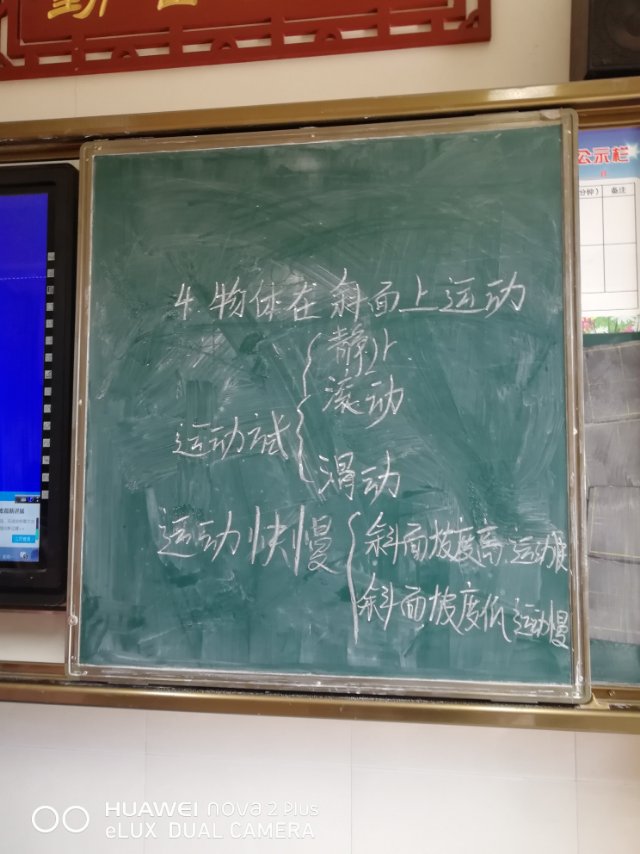 4. 物体在斜面上运动
静止
滚动
运动方式
滑动
运动快慢
斜面坡度高 运动快
斜面坡度低 运动慢
公示栏
分钟）
备注
HUAWEI nova 2 Plus
eLUX DUAL CAMERA